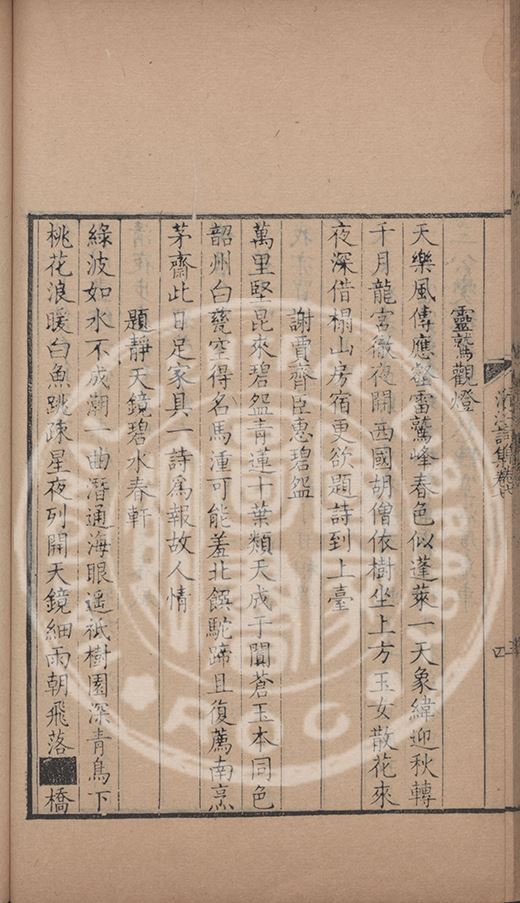 靈鷲觀燈
天樂風傳應壑雷鷲峰春色似蓬萊一天象緯迎秋轉
千月龍宮徹夜開西國胡僧依樹坐上方玉女散花來
夜深借榻山房宿更欲題詩到上臺
謝賈齊臣惠碧盌
萬里堅昆來碧盌青蓮十葉類天成于闐蒼玉本同色
韶州白甆空得名馬湩可能羞北饌駝蹄且復薦南烹
茅齋此日足家具一詩爲報故人情
題靜天鏡碧水春軒
綠波如水不成潮一曲潛通海眼遥祗樹園深青鳥下
桃花浪暖白魚跳疎星夜列開天鏡細雨朝飛落■橋
詩集卷六
四